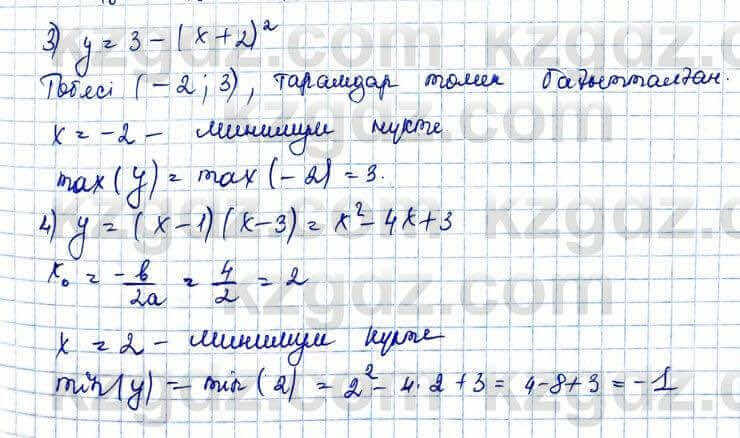 3) y = 3 - (x+2)²
Төбесі (-2; 3), тарамдар төмен бағытталған.
x = -2 - минимум нүкте
max(y) = max(-2) = 3.
4) y = (x-1)(x-3) = x² - 4x + 3
x₀ = -b/2a = 4/2 = 2
x = 2 - минимум нүкте
min(y) = min(2) = 2² - 4·2 + 3 = 4-8+3 = -1